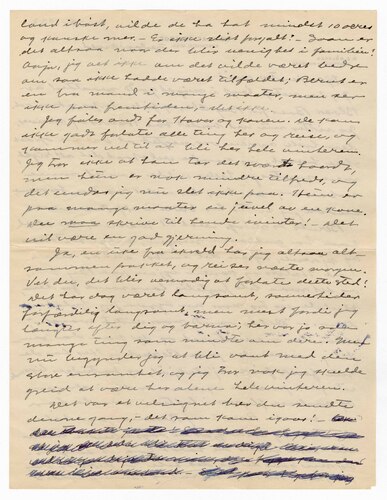 land i høst, vilde de ha hat mindst 10 acres
og kanske mer. – Er ikke sligt for galt! – Svan er
det altsaa naar der blir uenighet i familien!
om saa ikke hadde været tilfældet; Bernt er
en bra mand i mange maater, men ser
ikke paa fremtiden, – slet ikke.
Jeg føler ondt for Haver og konen. De kan
ikke godt forlate alle ting her og reise, og
kommer vel til at bli her hele vinteren.
Jeg tror ikke at han tar det saa haardt,
men hun er nok mindre tilfreds, og
det undres jeg nu slet ikke paa. Hun er
paa mange maater en juvel av en kone.
Du maa skrive til hende i vinter! – Det
vil være en god gjerning.
Ja, en uke fra ikveld har jeg altsaa alt-
sammen pakket, og reiser næste morgen.
Vet du, det blir vemodig at forlate dette sted!
Det har dog været langsomt, sommetider
forfærdelig langsomt, men mest fordi jeg
længes efter dig og barna; her var jo ogsaa
mange ting som mindte om dere. Men
nu begynder jeg at bli vant med den
store ensomhet, og jeg tror nok jeg skulde
greid at være her alene hele vinteren.
Det var et vélsignet brev du sendte
denne gang, – det som kom igaar! –